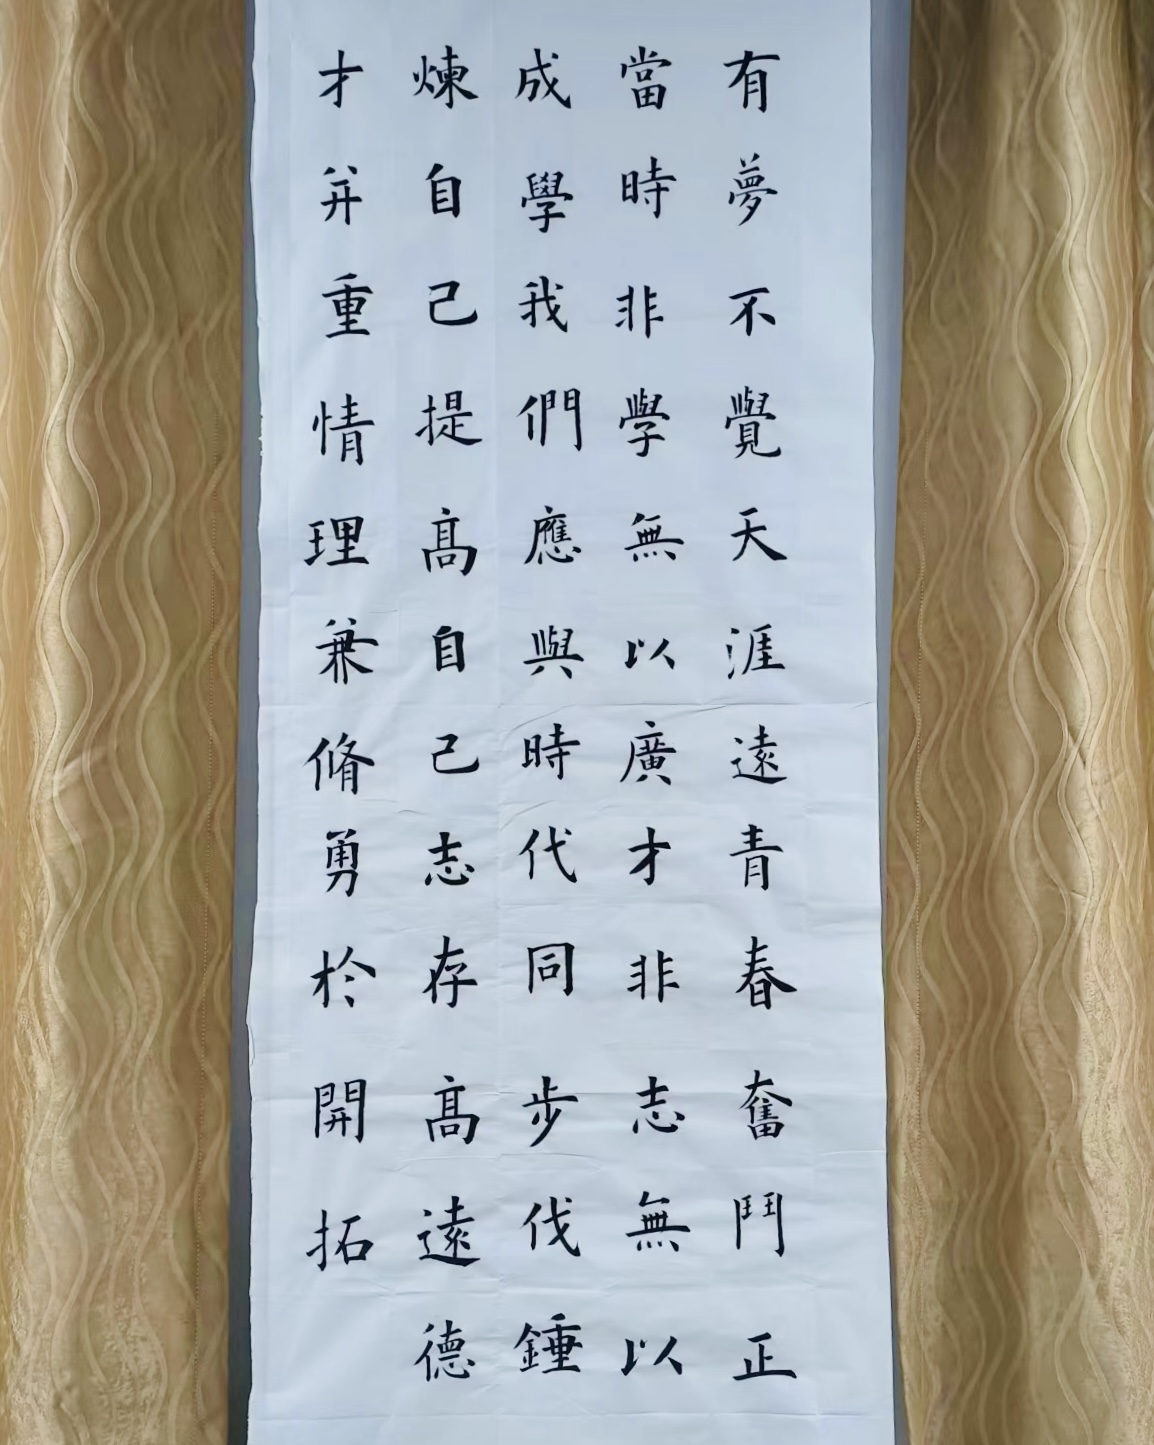 有夢不覺天涯遠青春奮鬥正
當時非學無以廣才非志無以
成學我們應與時代同步伐錘
煉自己提高自己志存高遠德
才并重情理兼脩勇於開拓